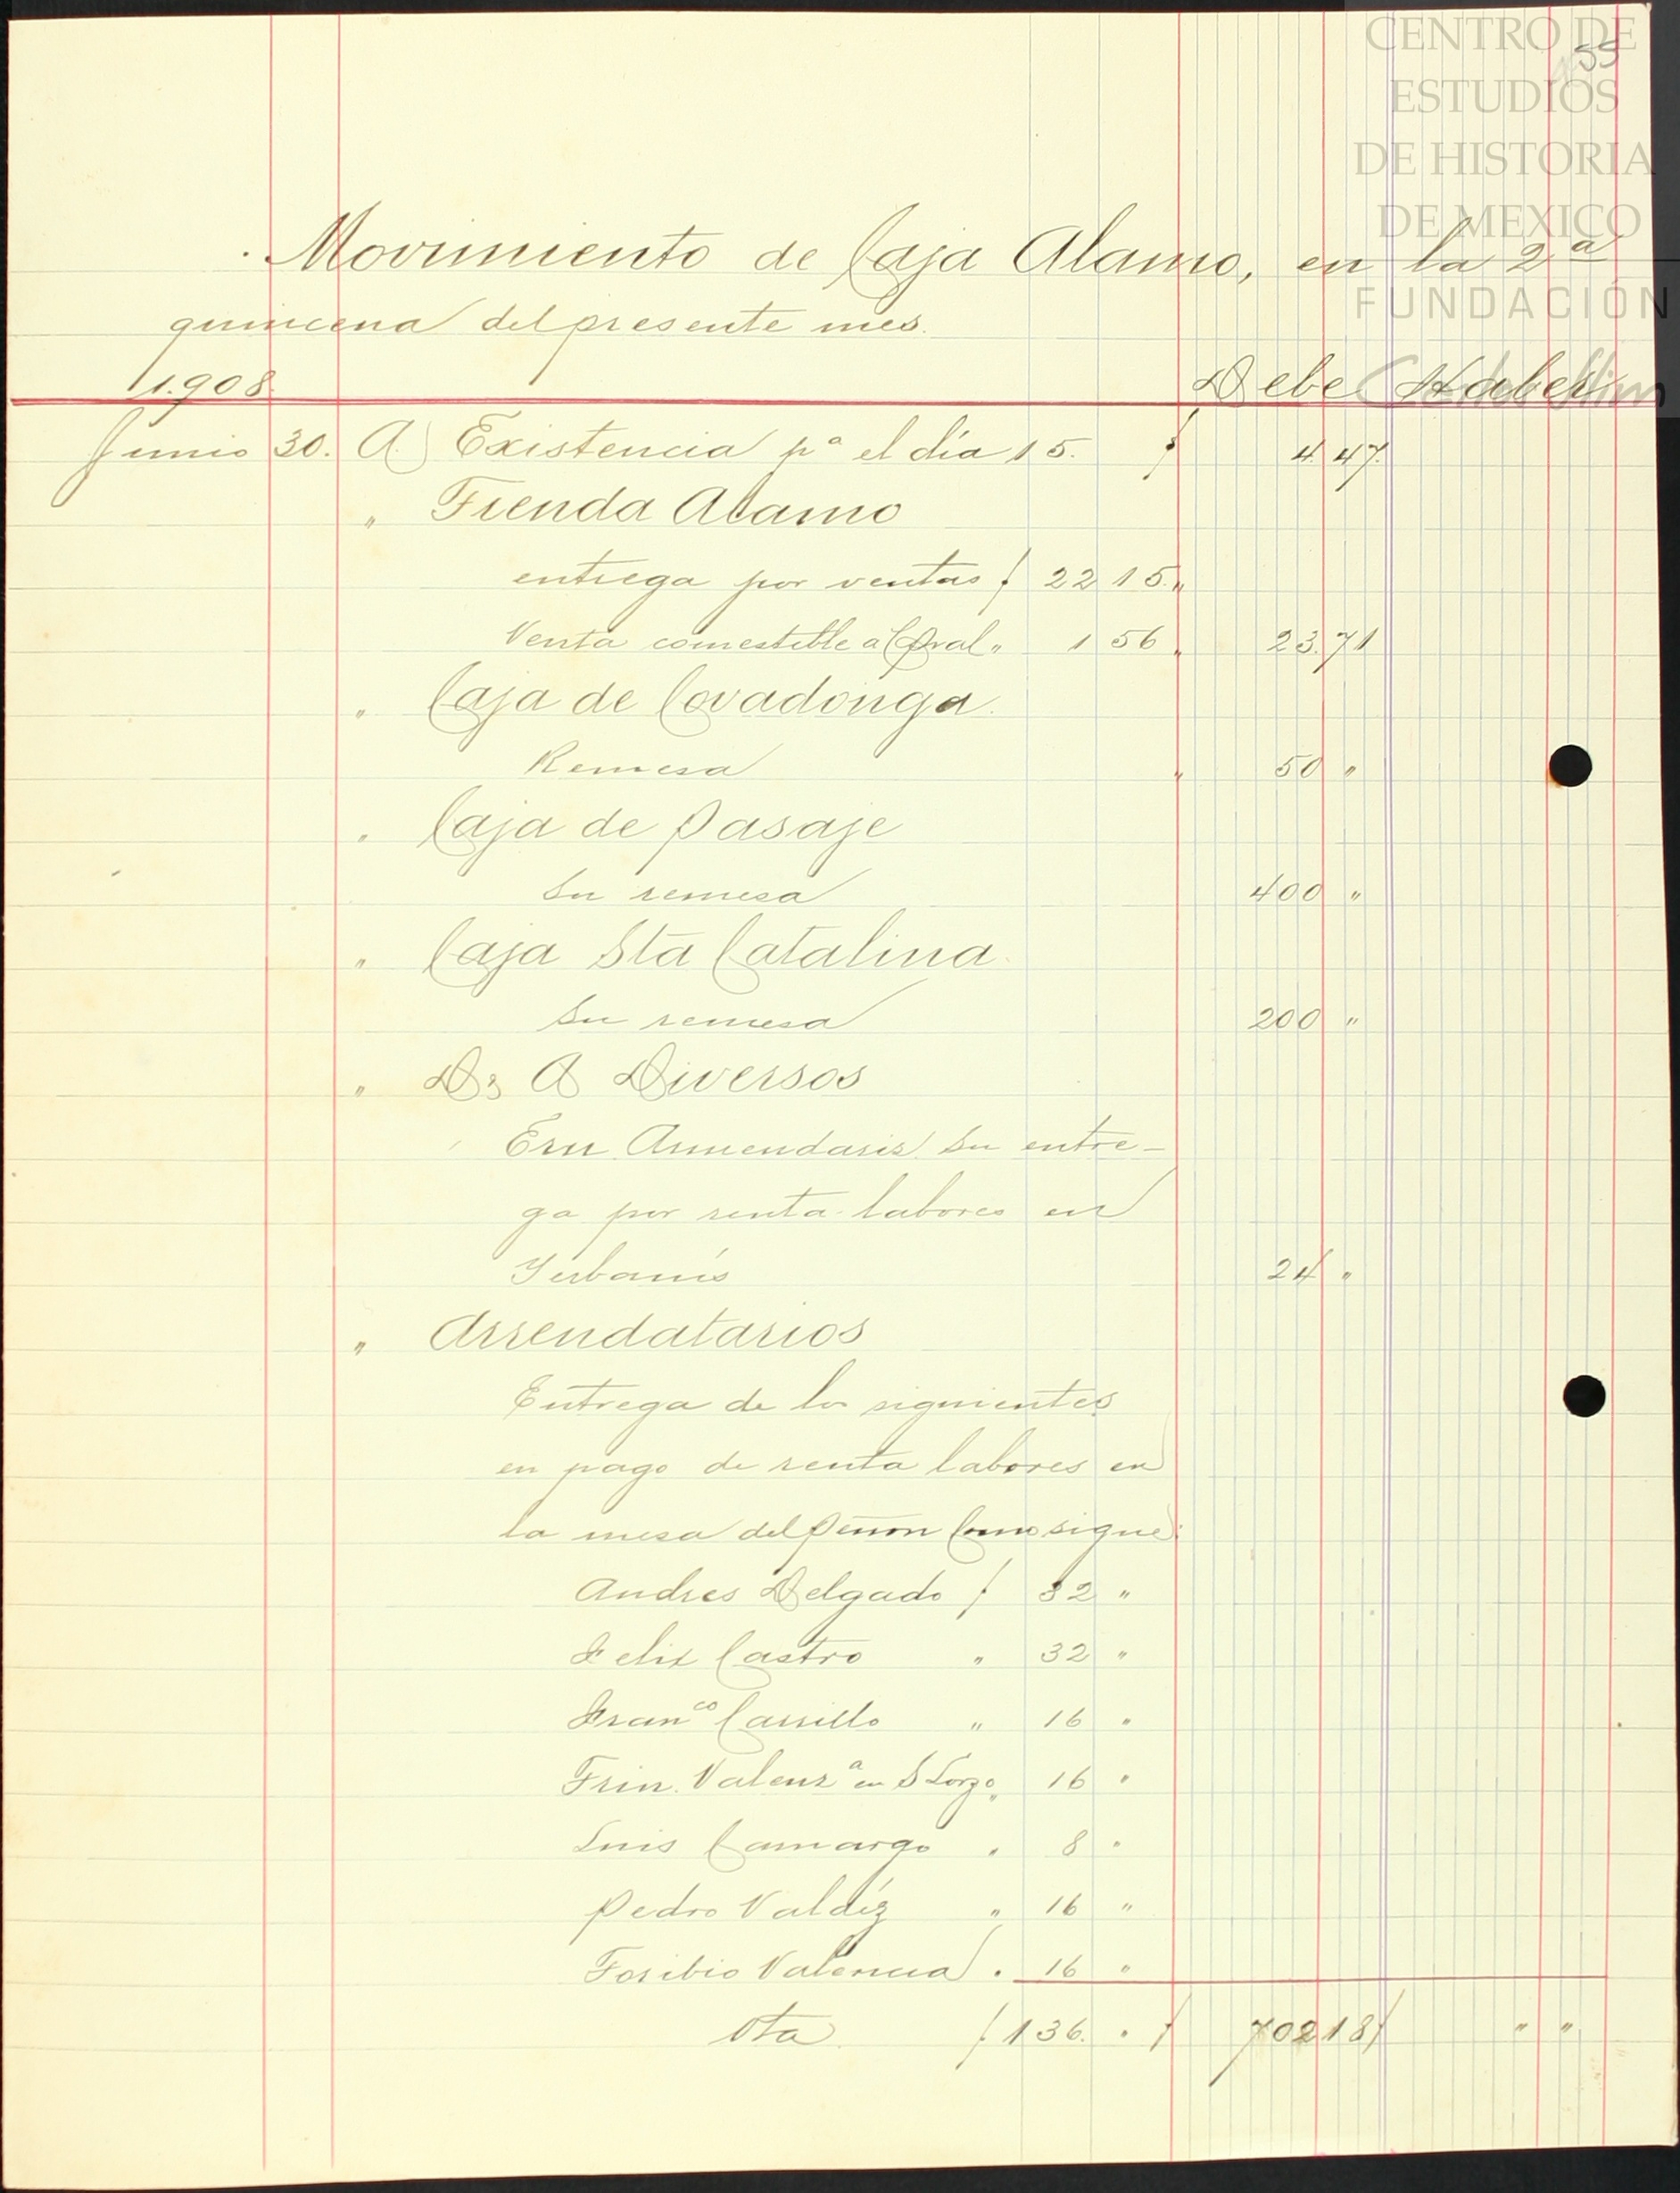 CENTRO DE
ESTUDIOS
DE HISTORIA
DE MEXICO
FUNDACIÓN
55
Movimiento de Caja Alamo, en la 2ª
quincena del presente mes.
1.908. Debe Haber
Junio 30. A) Existencia pª el día 15. $ 4.47.
" Tienda Alamo
entrega por ventas $ 22 15 "
Venta comestible a Gral " 1 56 " 23.71
" Caja de Covadonga.
Remesa " 50 "
" Caja de Pasaje
Su remesa 400 "
" Caja Sta Catalina.
Su remesa 200 "
" Ds A Diversos
Armendaris su entre-
ga por renta labores en
Yerbanís 24 "
" Arrendatarios
Entrega de los siguientes
en pago de renta labores en
la mesa del Peñon Como sigue:
Andres Delgado $ 32 "
Felix Castro " 32 "
Franco Carrillo " 16 "
Trin. Valenzª en S Lorzo " 16 "
Luis Camargo " 8 "
Pedro Valdéz " 16 "
Toribio Valencia " 16 "
Vta. $ 136. " $ 702 18 $ " "